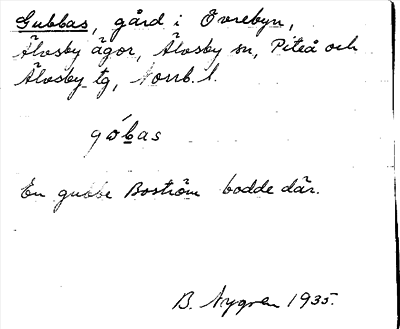 Gubbas, gård i Övrebyn,
Älvsby ägor, Älvsby sn, Piteå och
Älvsby tg, Norrb. l.
En gubbe Boström bodde där.
B. Nygren 1935.